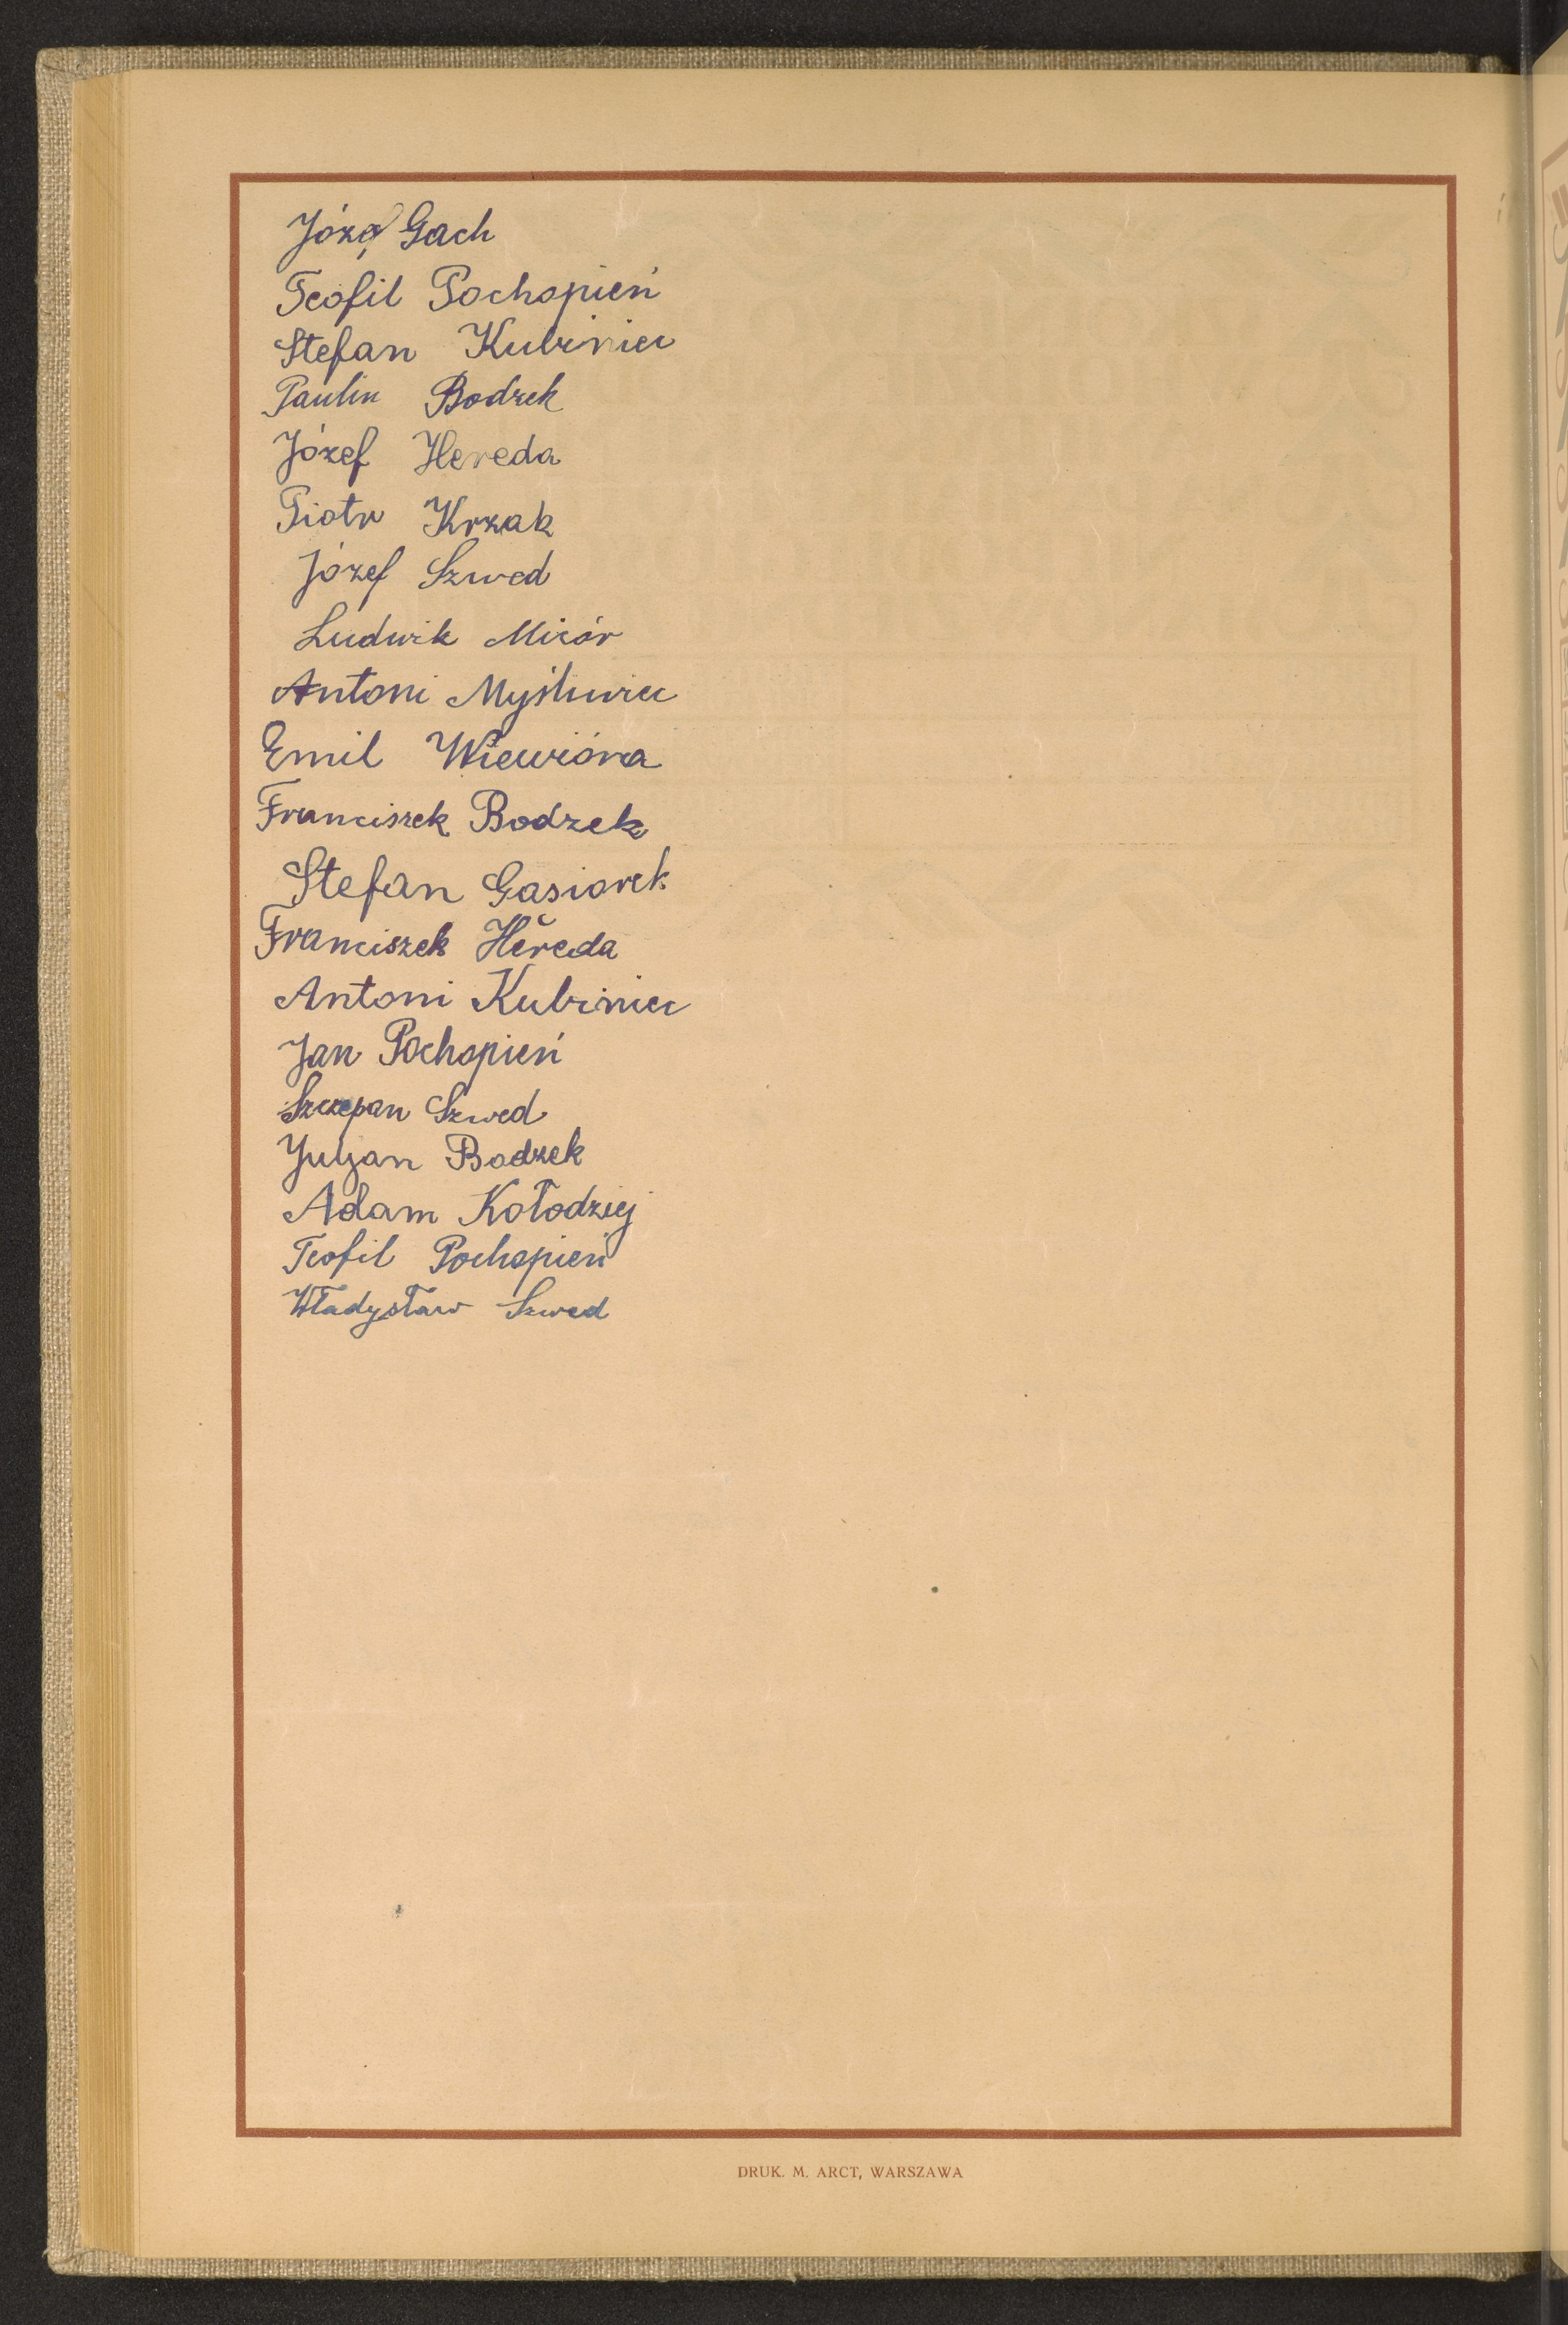 Józef Gach
Teofil Pochopień
Stefan Kubiniec
Paulin Bodzek
Józef Hereda
Piotr Krzak
Józef Szwed
Ludwik Mizór
Antoni Myśliwiec
Emil Wiewióra
Franciszek Bodzek
Stefan Gasiorek
Franciszek Hereda
Antoni Kubiniec
Jan Pochopień
Szczepan Szwed
Juljan Bodzek
Adam Kołodziej
Teofil Pochopień
Władysław Szwed
DRUK. M. ARCT, WARSZAWA